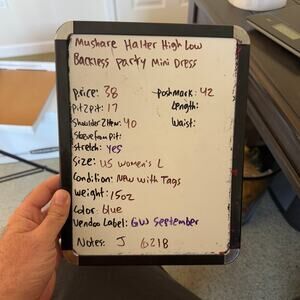 Mushare Halter High Low
Backless Party Mini Dress
price: 38
poshmark: 42
Pit2pit: 17
Length:
Shoulder2Hem: 40
Waist:
Sleevefrompit:
stretch: yes
Size: US women's L
Condition: New with Tags
weight: 15oz
Color: blue
Vendoo Label: GW September
Notes: J 6218